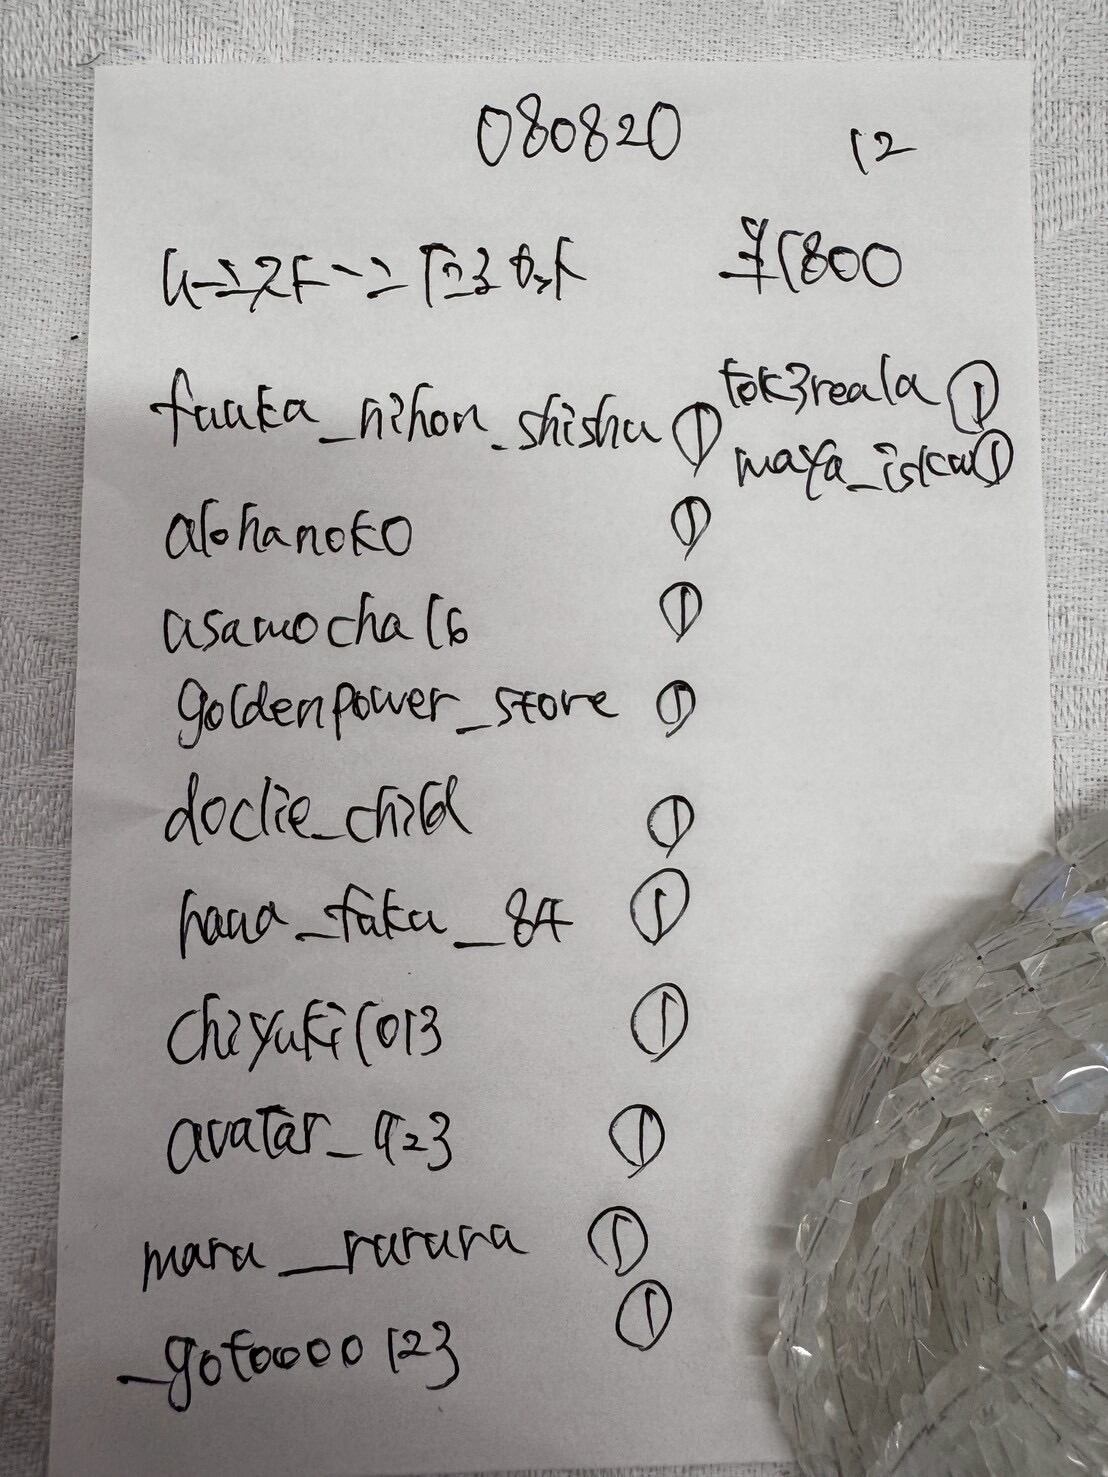 080820 12
¥1800
fuuka_nihon_shisha ①
tok3reala ①
maya_iskw ①
alohanoko ①
asamocha16 ①
goldenpower_store ①
doclie_child ①
hana_fuku_84 ①
chiyuki1013 ①
avatar_923 ①
maru_rurura ①
_gotoooo0123 ①